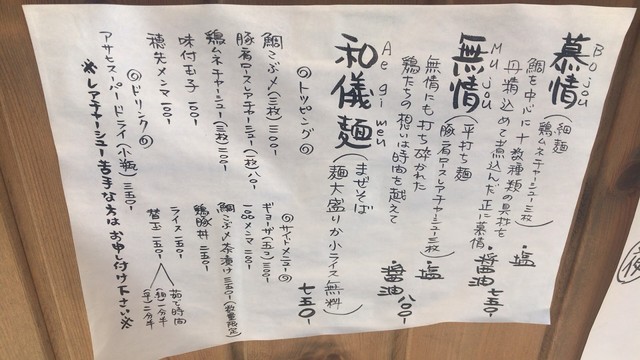 慕情
Bojou
(細麺
鶏ムネチャーシュー三枚)
鯛を中心に十数種類の具材を
丹精込めて煮込んだ正に慕情
・塩
・醤油 七五〇-
無情
Mu jou
(平打ち麺
豚肩ロースレアチャーシュー三枚)
無情にも打ち砕かれた
鶏たちの想いは時間を越えて
・塩
・醤油 八〇〇-
和儀麺
Ae gi men
(まぜそば
麺大盛りか小ライス無料)
七五〇-
◎トッピング◎
鯛こぶ〆(三枚) 三〇〇-
豚肩ロースレアチャーシュー(一枚) 八〇-
鶏ムネチャーシュー(三枚) 二〇〇-
味付玉子 一〇〇-
穂先メンマ 一〇〇-
◎サイドメニュー◎
ギョーザ(五コ) 三〇〇-
100メンマ 一〇〇-
鯛こぶ〆茶漬け 三五〇-(数量限定)
鶏豚丼 二五〇-
ライス 一五〇-
替玉 一五〇-
茹で時間
(細)一分半
(平)二分半
◎ドリンク◎
アサヒスーパードライ(小瓶) 三五〇-
※レアチャーシュー苦手な方はお申し付け下さい※